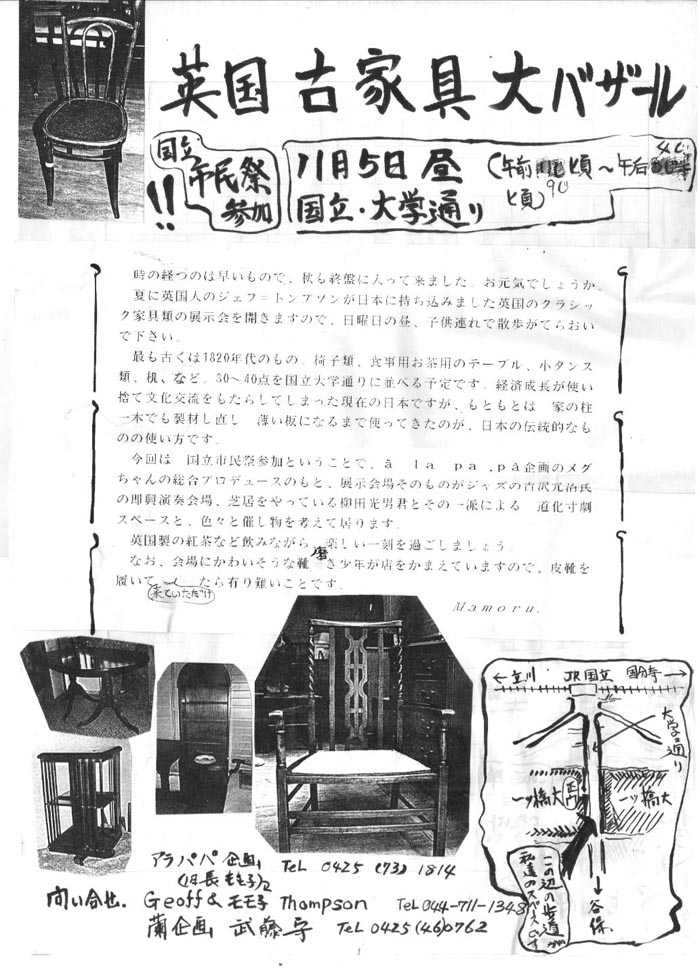 英国古家具大バザール
国立
市民祭
参加
!!
11月5日昼
(午前 頃〜午后
頃)
国立・大学通り
時の経つのは早いもので、秋も終盤に入って来ました。お元気でしょうか。
夏に英国人のジェフ=トンプソンが日本に持ち込みました英国のクラシッ
ク家具類の展示会を開きますので、日曜日の昼、子供連れで散歩がてらおいで
で下さい。
最も古くは1820年代のもの。椅子類、食事用お茶用のテーブル、小タンス
類、机、など。30〜40点を国立大学通りに並べる予定です。経済成長が使い
捨て文化交流をもたらしてしまった現在の日本ですが、もともとは 家の柱
一本でも製材し直し 薄い板になるまで使ってきたのが、日本の伝統的なも
のの使い方です。
今回は 国立市民祭参加ということで、à la pa .pà企画のメグ
ちゃんの総合プロデュースのもと、展示会場そのものがジャズの吉沢元治氏
の即興演奏会場、芝居をやっている柳田光男君とその一派による 道化寸劇
スペースと、色々と催し物を考えて居ります。
英国製の紅茶など飲みながら、楽しい一刻を過ごしましょう。
なお、会場にかわいそうな靴磨き少年が店をかまえていますので、皮靴を
履いて来ていただけたら有り難いことです。
Mamoru.
←立川 JR国立 国分寺→
大学通り
一ツ橋大 正門
一ツ橋大
この辺の歩道が
私達のスペースです
↓谷保
アラパパ企画 Tel 0425 (73) 1814
問い合せ. Geoff & モモ子 Thompson Tel 044-711-1348
蘭企画 武藤守 Tel 0425 (46) 0762